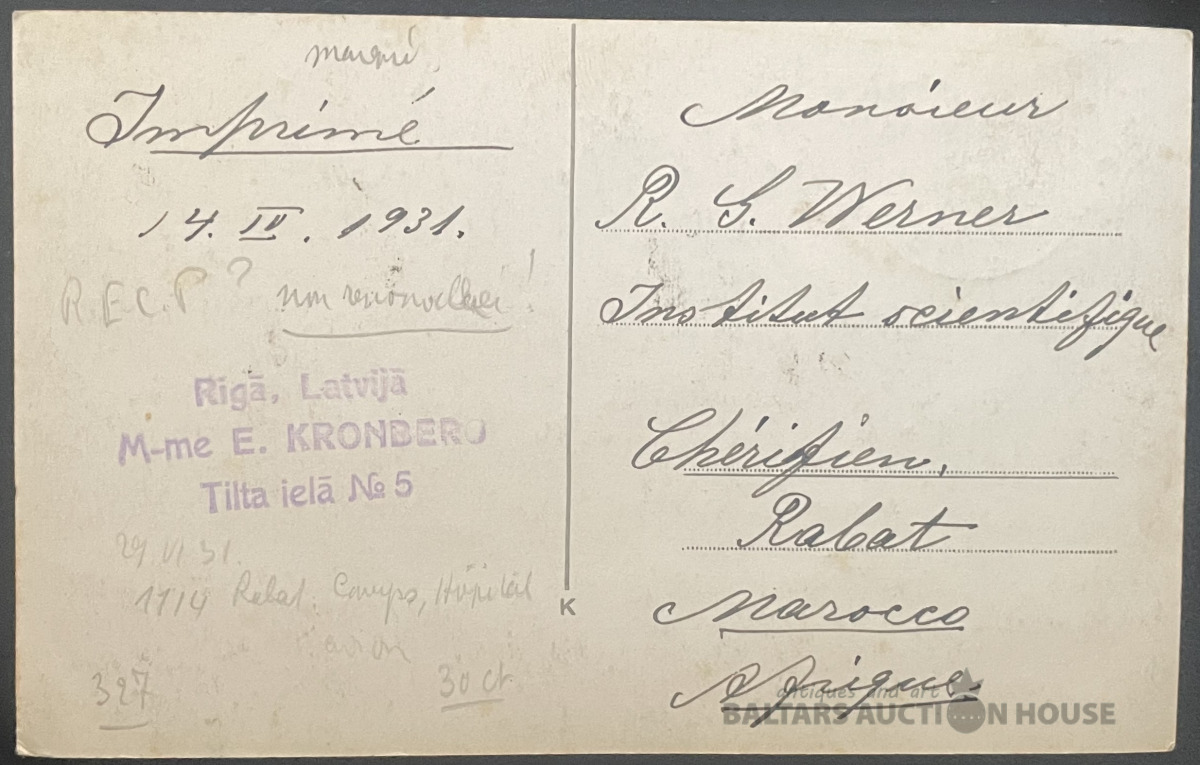 Imprimé
14. IV. 1931.
R.E.C.P ? non !
Rīgā, Latvijā
M-me E. KRONBERG
Tilta ielā № 5
29 VI 31.
1114 Rabat. Camps, Hôpital
avion
327
30 ct
K
Monsieur
R. G. Werner
Institut scientifique
Chérifien,
Rabat
Marocco
Afrique.
antiques and art
BALTARS AUCTION HOUSE